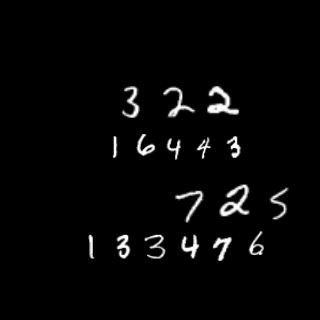 3 2 2
1 6 4 4 3
7 2 5
1 3 3 4 7 6